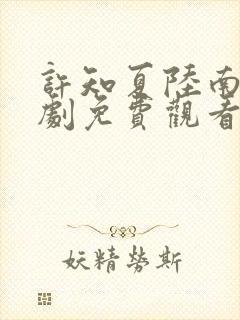 許知夏陸南
劇免費觀看
妖精勞斯